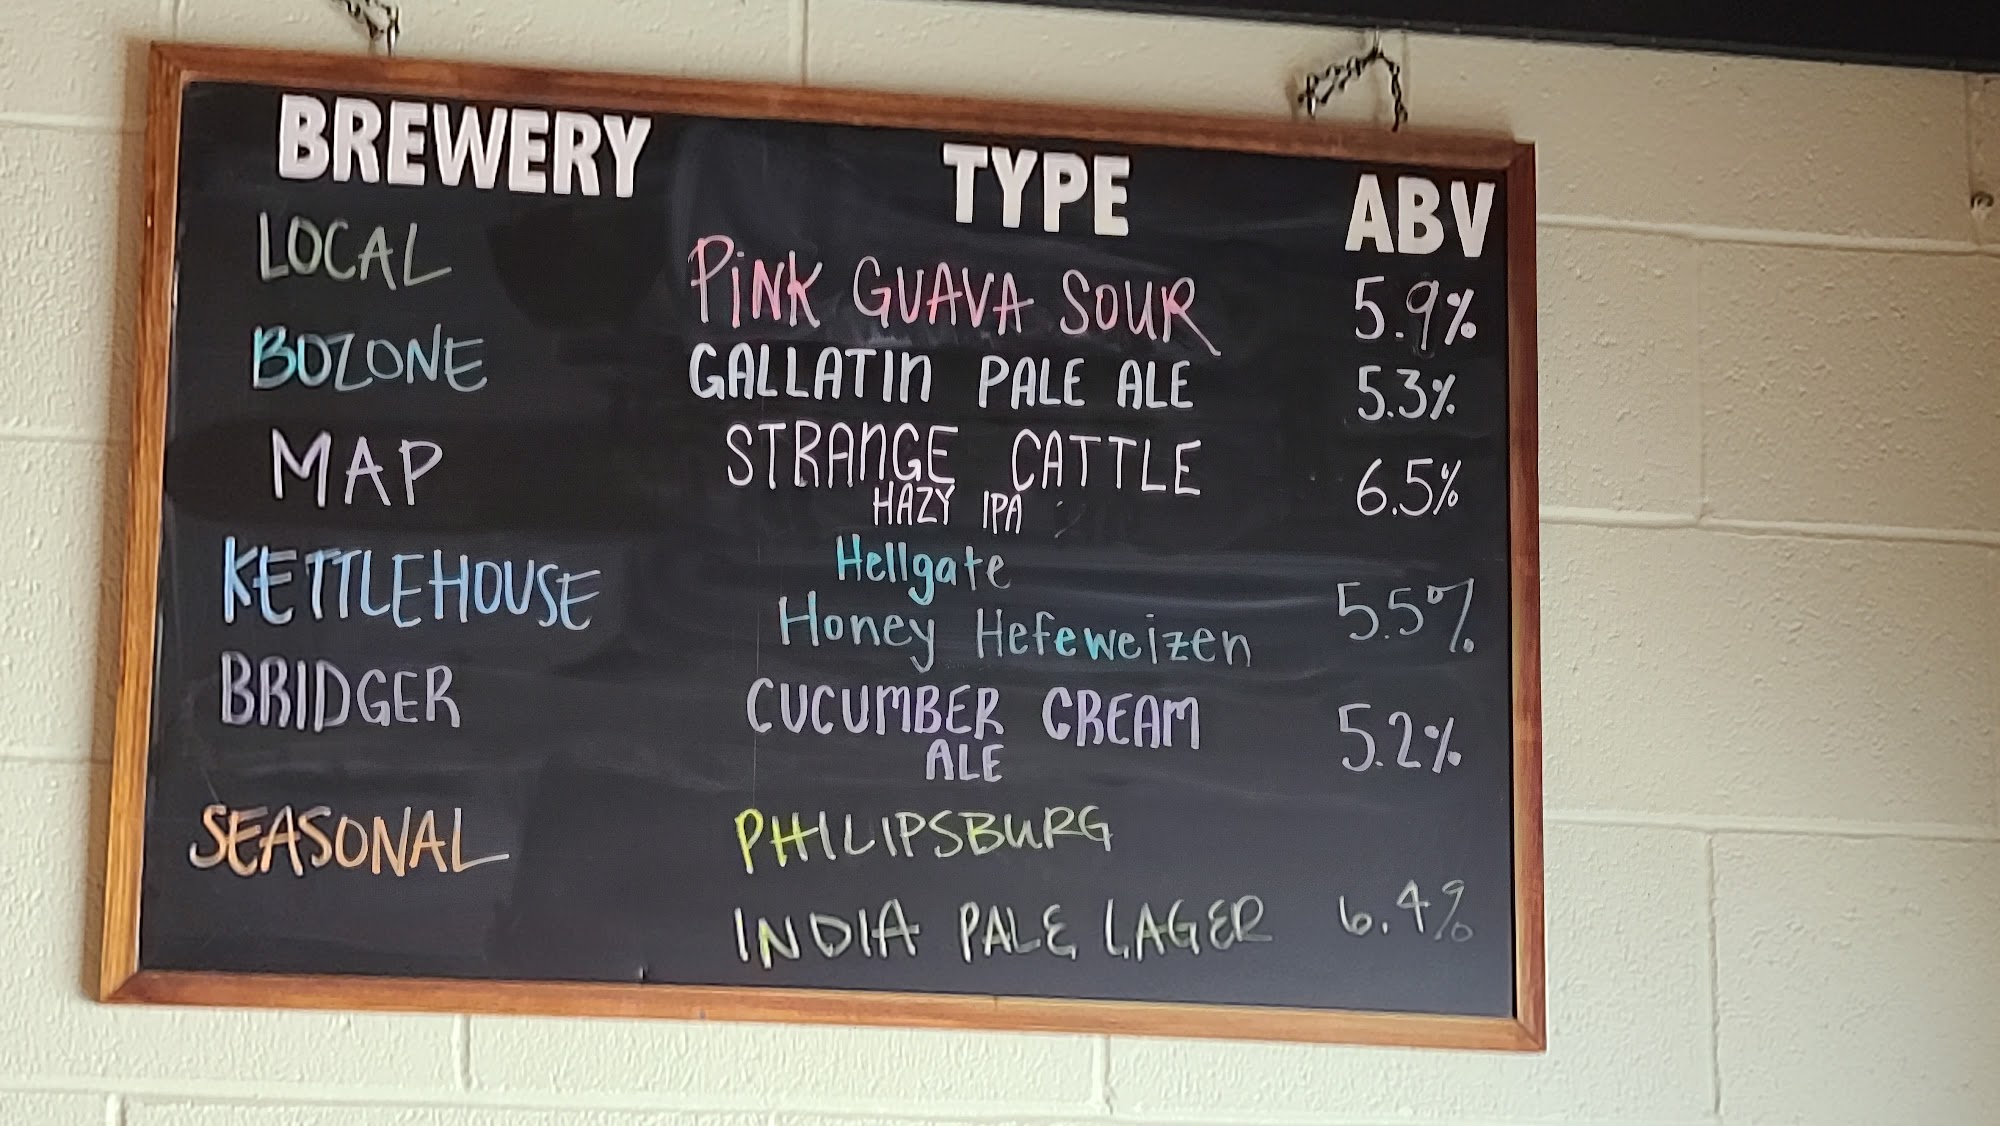 BREWERY TYPE ABV
LOCAL PINK GUAVA SOUR 5.9%
BOZONE GALLATIN PALE ALE 5.3%
MAP STRANGE CATTLE 6.5%
HAZY IPA
Hellgate
KETTLEHOUSE Honey Hefeweizen 5.5%
BRIDGER CUCUMBER CREAM 5.2%
ALE
SEASONAL PHILIPSBURG
INDIA PALE LAGER 6.4%